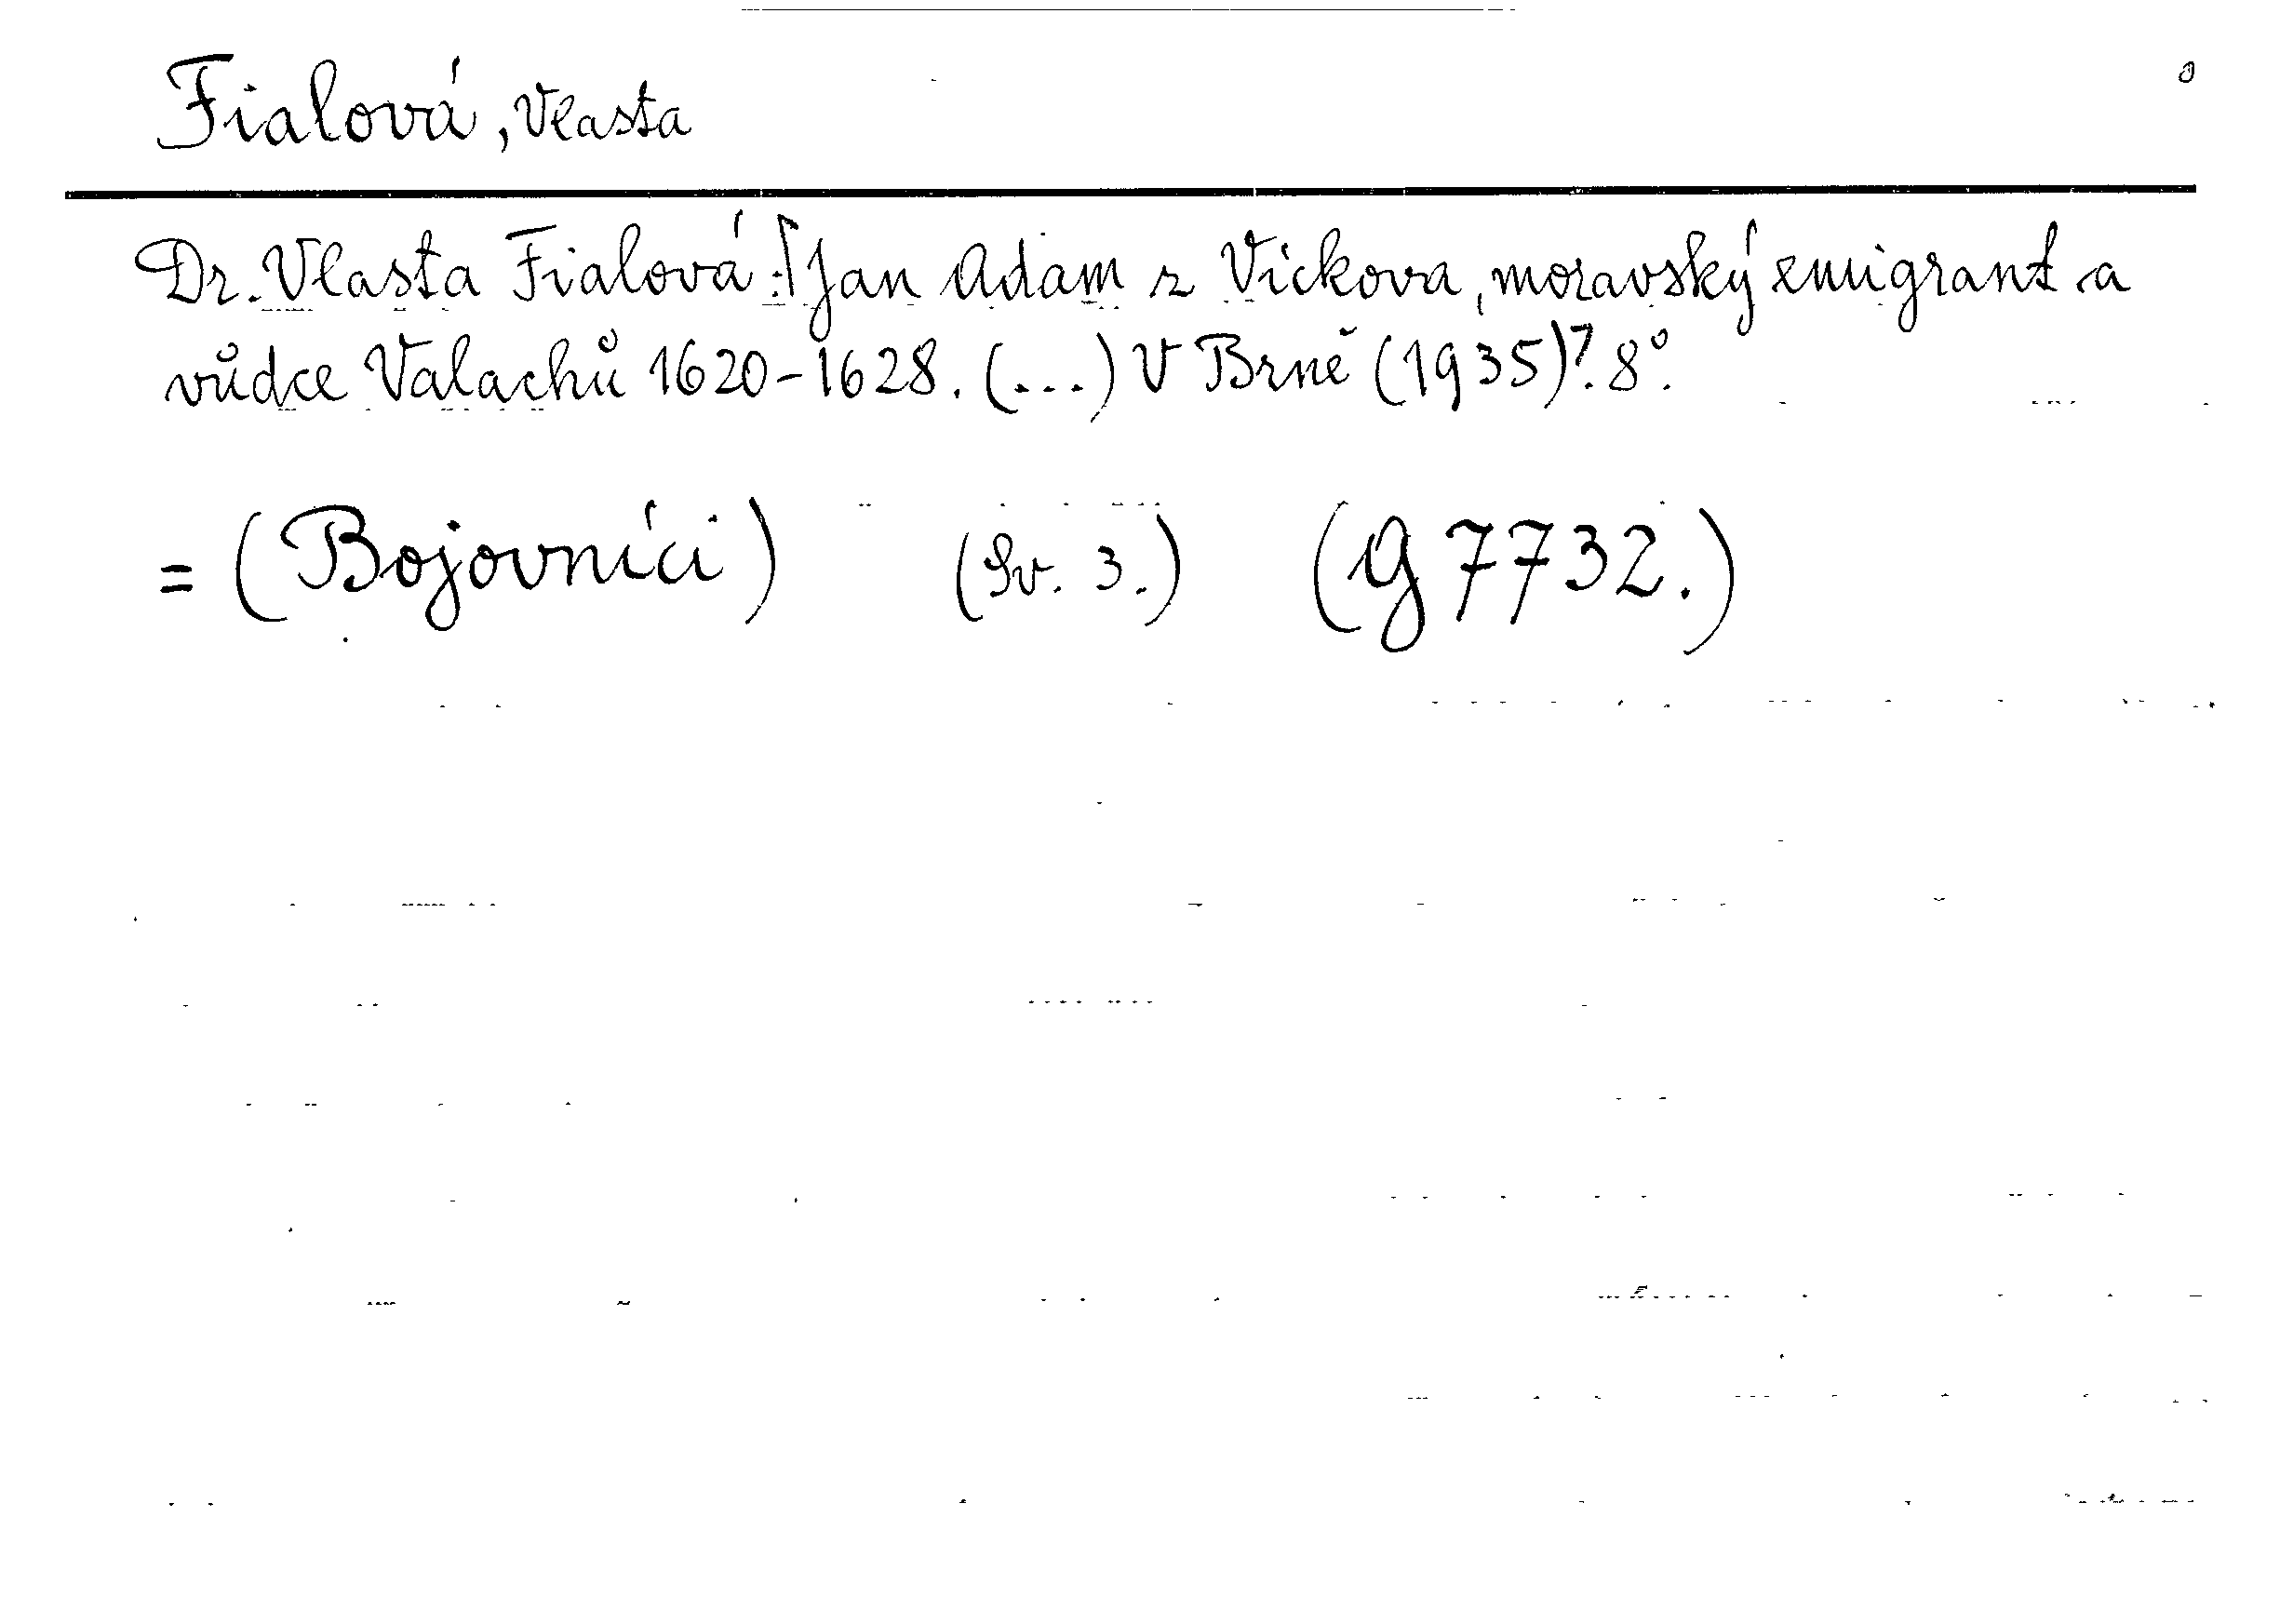 Fialová, Vlasta
Dr. Vlasta Fialová: ⌈Jan Adam z Víckova, moravský emigrant a
vůdce Valachů 1620-1628. (...) V Brně (1935)⌉. 8°.
= (Bojovníci) (Sv. 3.) (G 7732.)